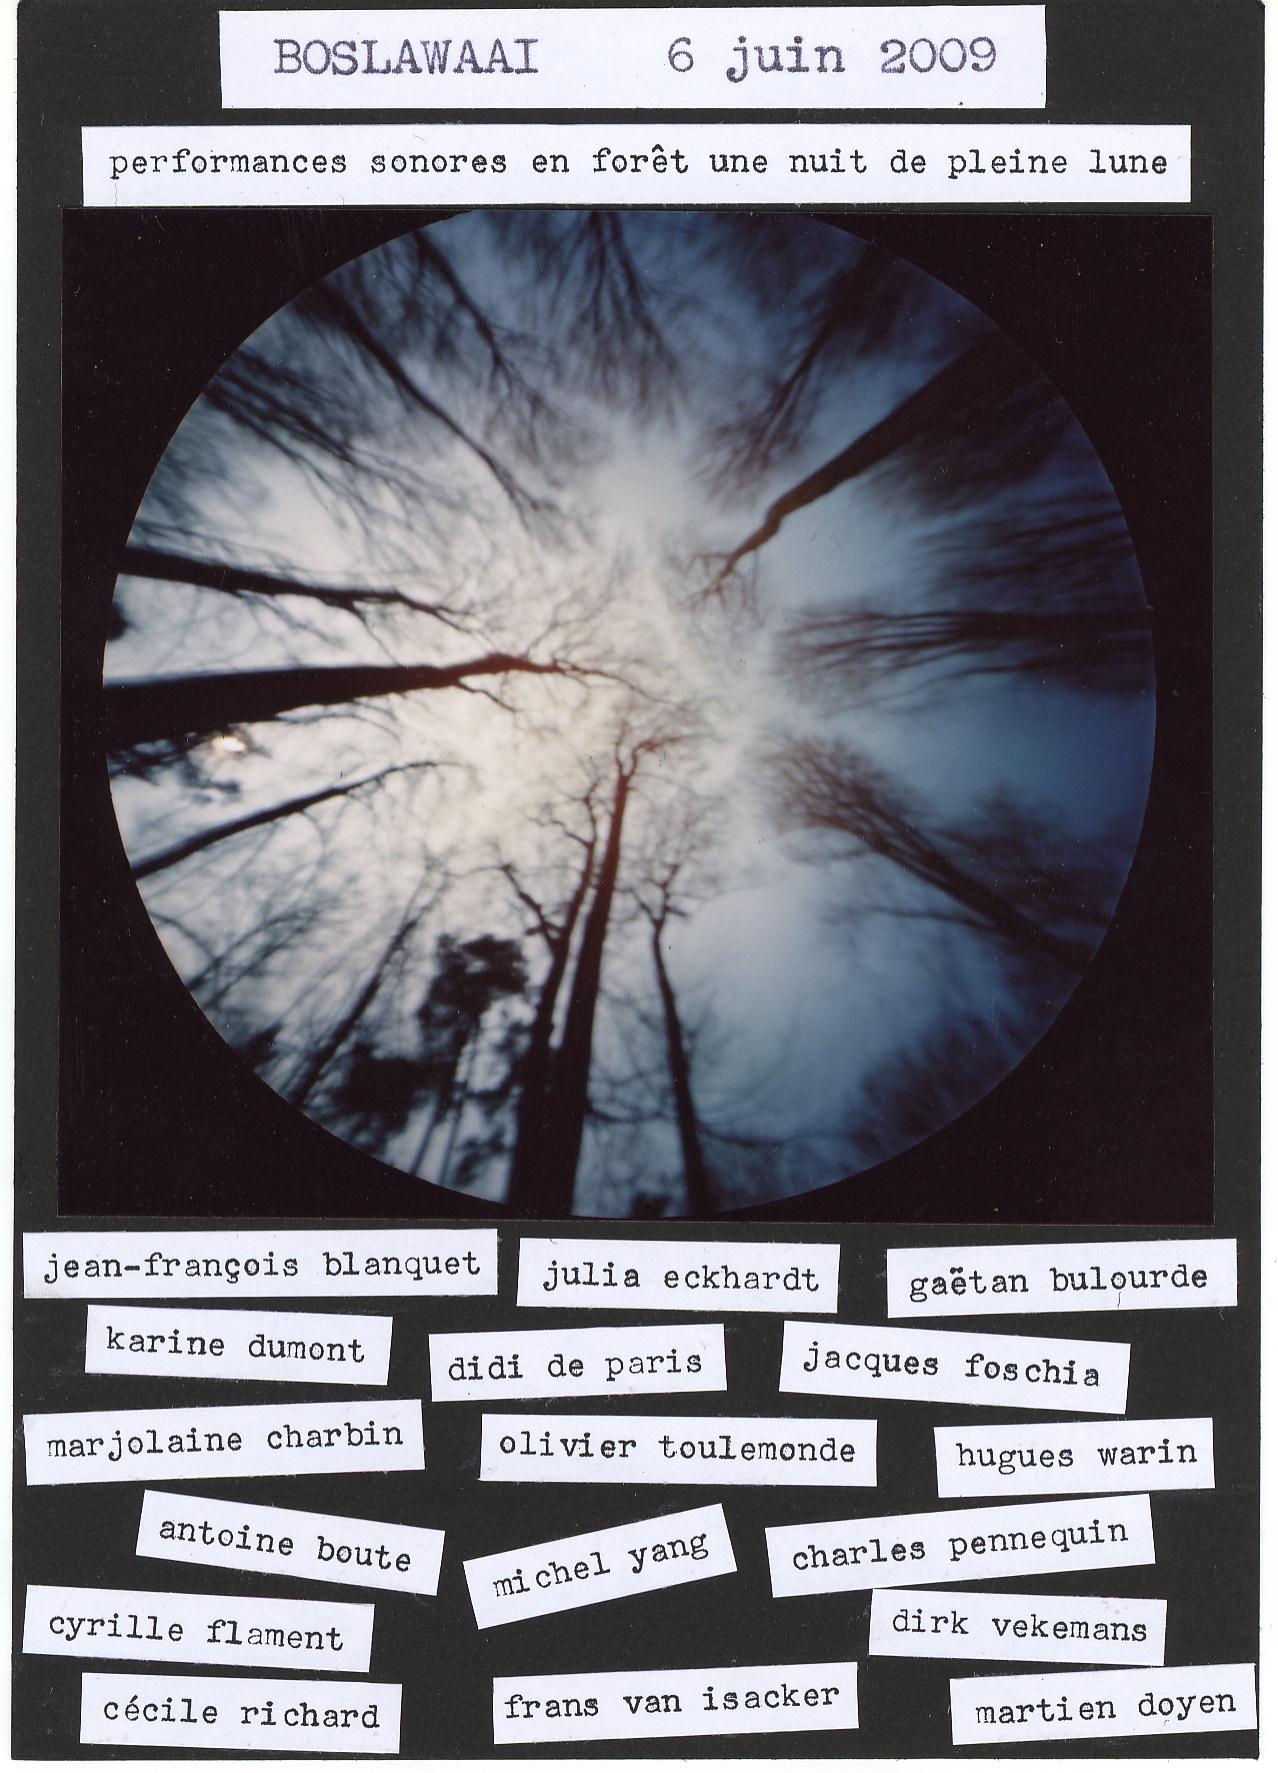 BOSLAWAAI 6 juin 2009
performances sonores en forêt une nuit de pleine lune
jean-françois blanquet
julia eckhardt
gaëtan bulourde
karine dumont
didi de paris
jacques foschia
marjolaine charbin
olivier toulemonde
hugues warin
antoine boute
michel yang
charles pennequin
cyrille flament
dirk vekemans
cécile richard
frans van isacker
martien doyen